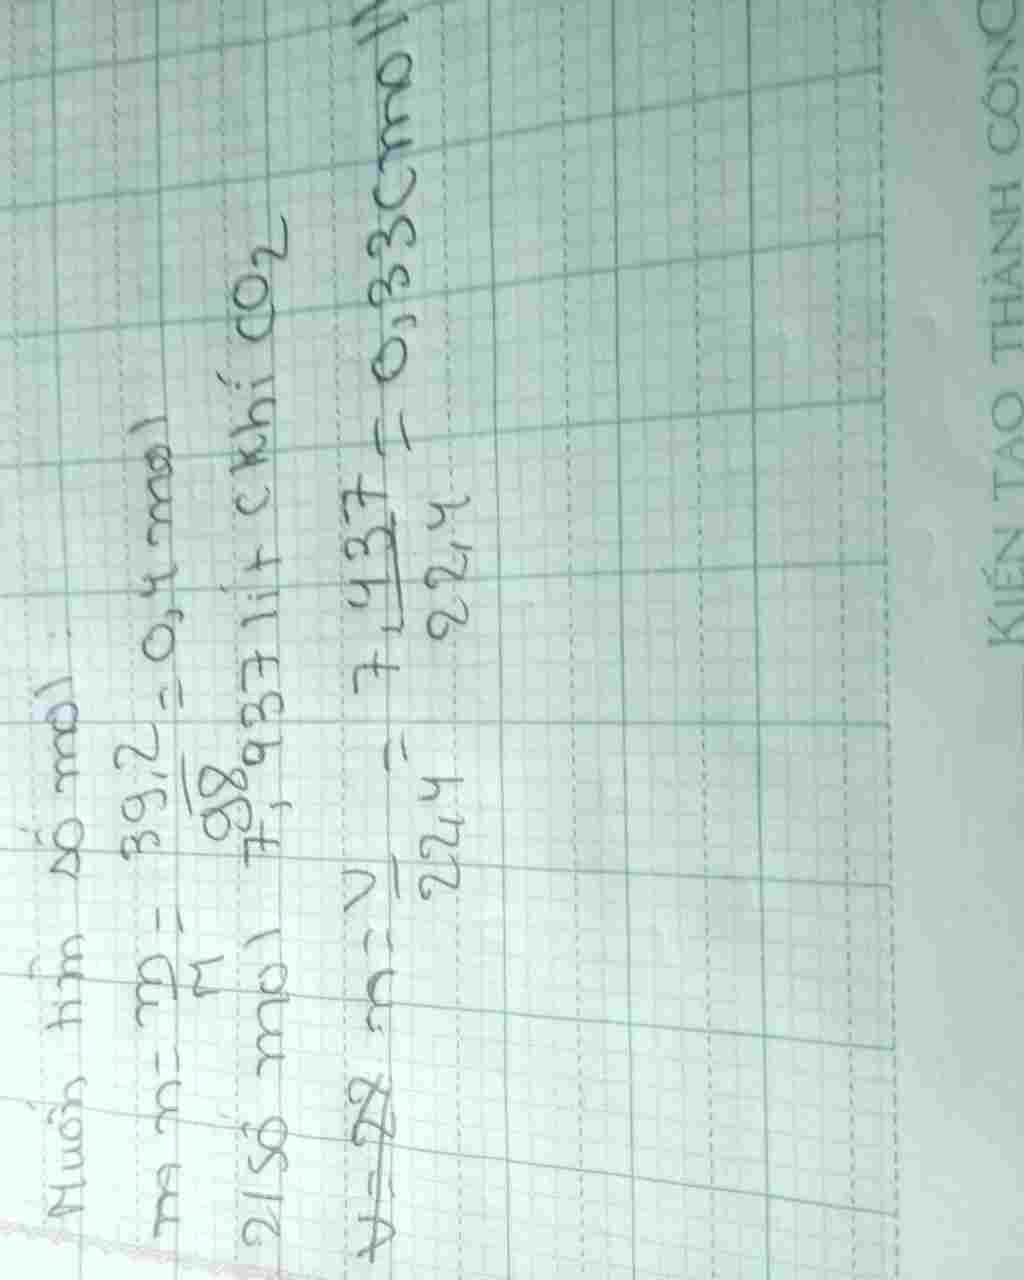 Muốn tìm số mol
m n = m/M = 39,2/98 = 0,4 mol
2) Số mol 7,937 lít khí CO2
n = V/22,4 = 7,437/22,4 = 0,33 (mol)
KIẾN TẠO THÀNH CÔNG